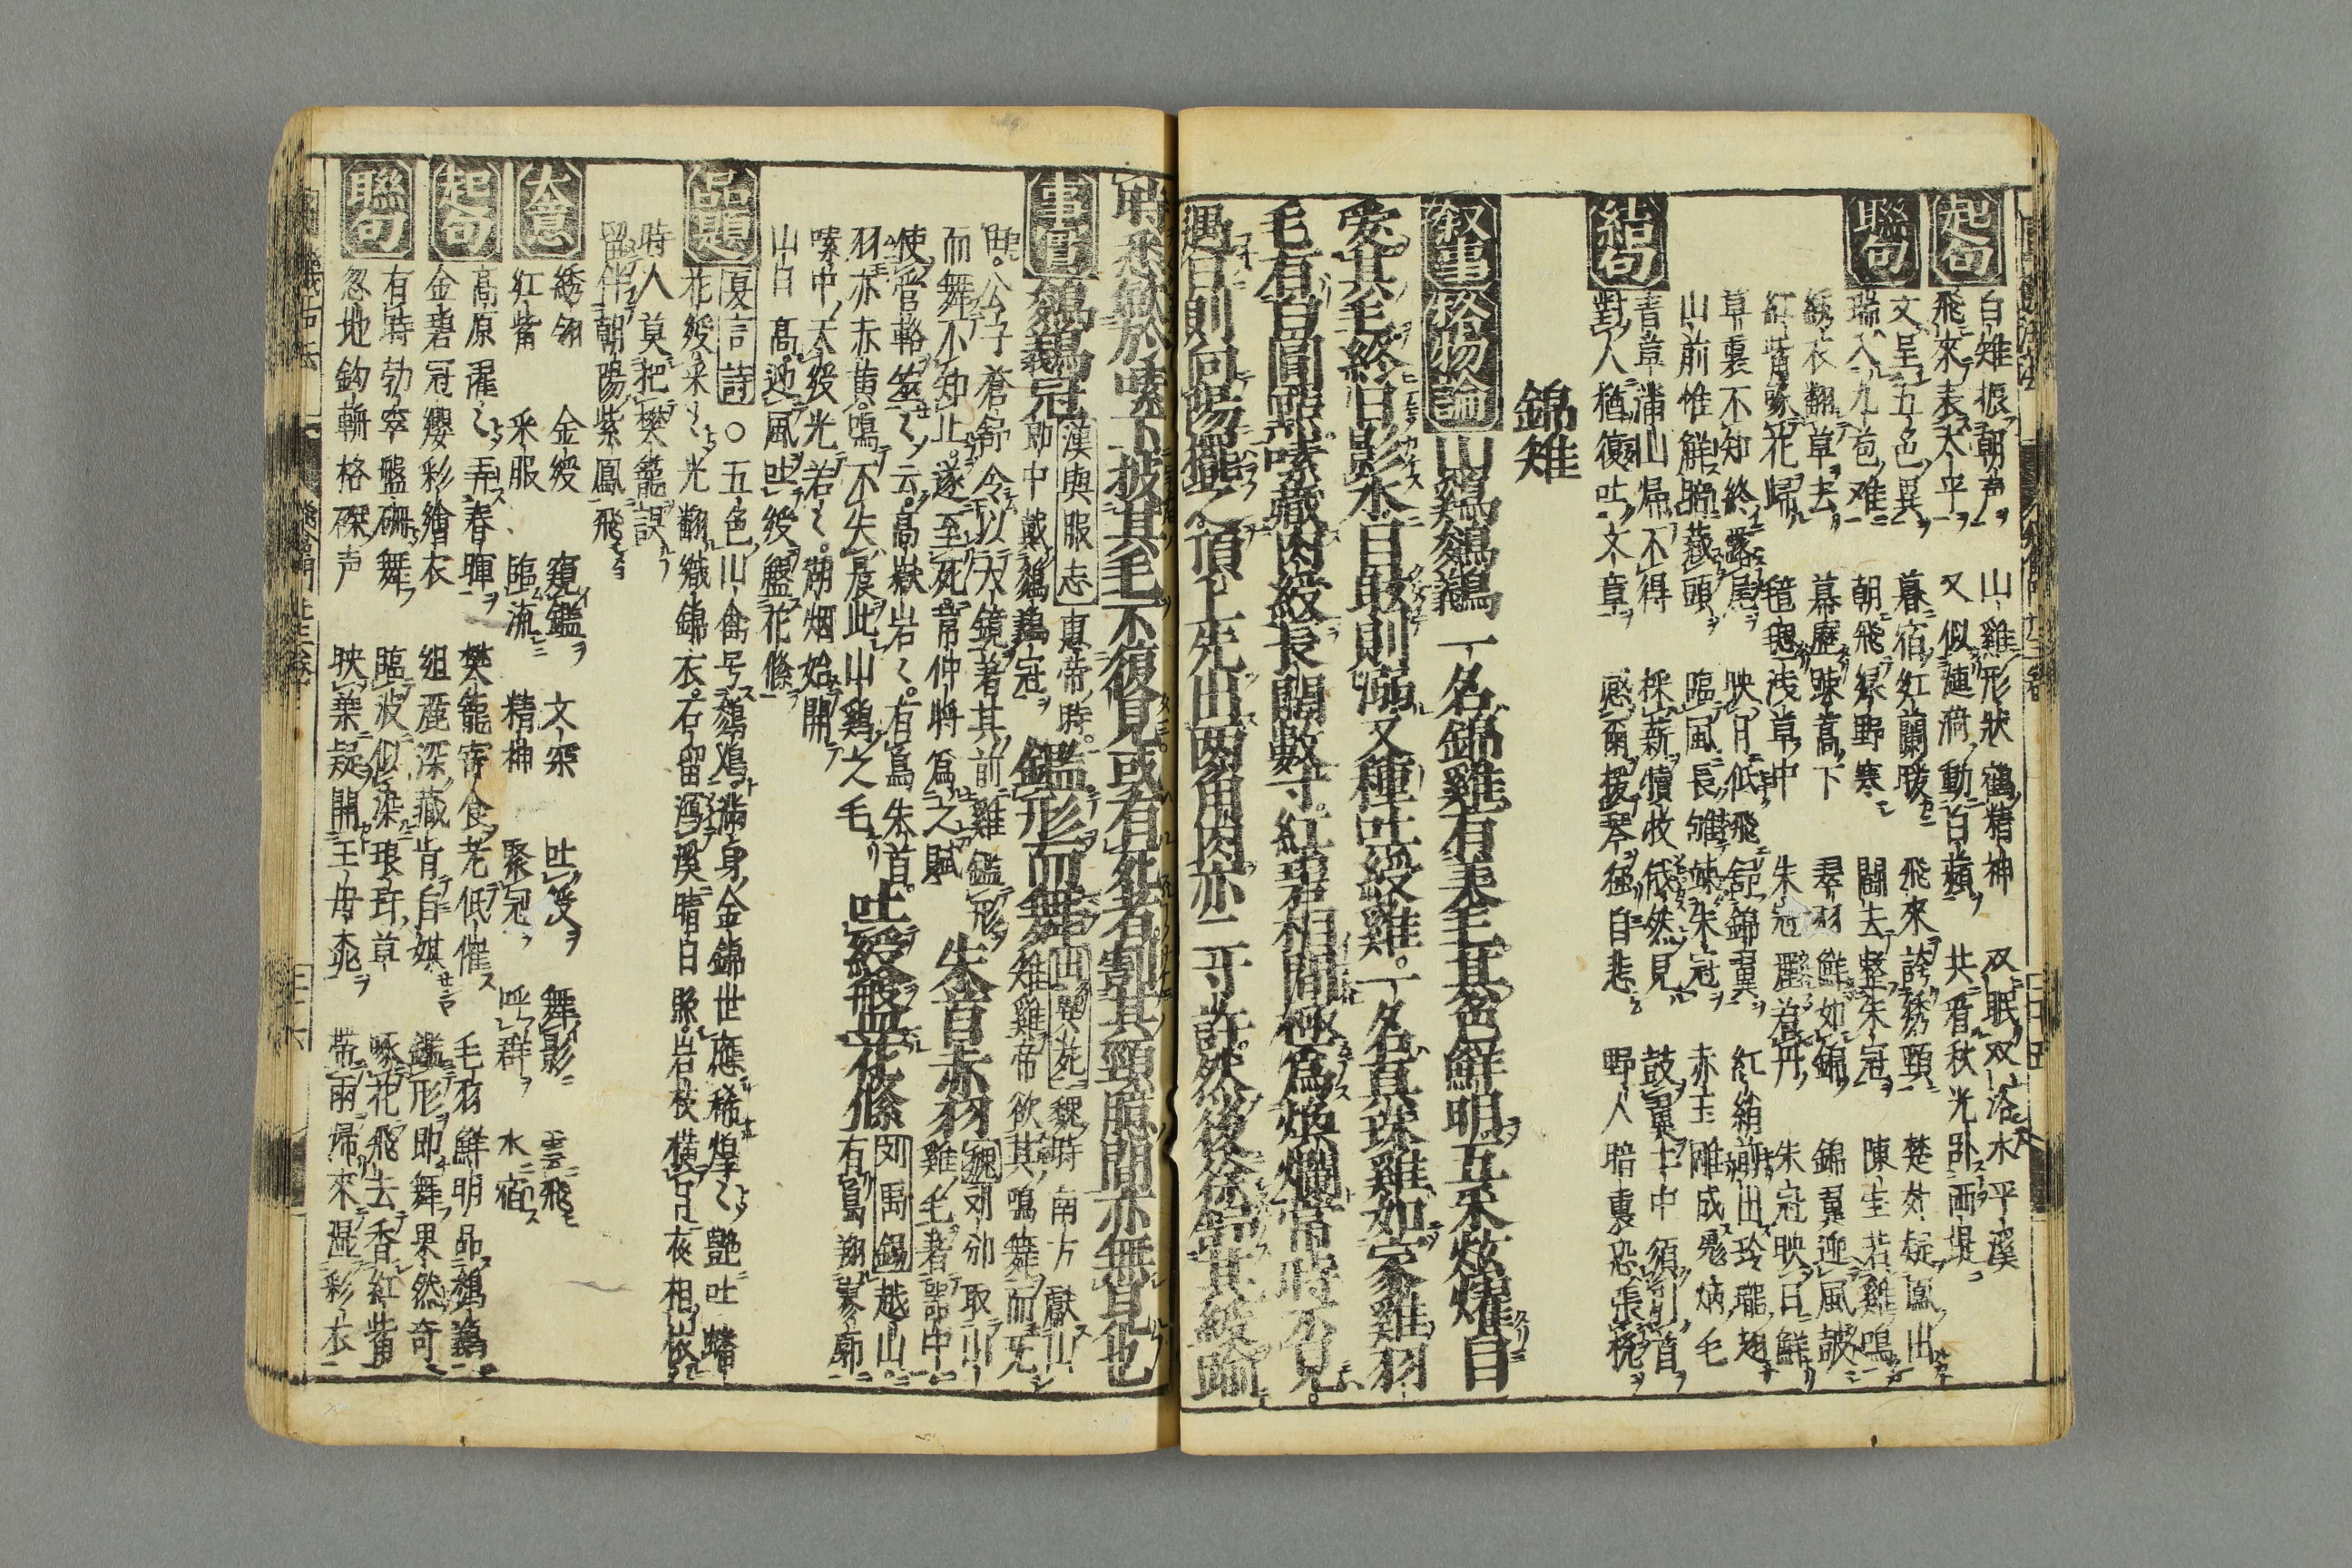 起句
白雉振朝声 山雞形狀鶴精神 双眠双浴水平溪
飛來表太平 又似漣漪動白蘋 共看秋光卧西堤
聯句
文呈五色異 暮宿紅蘭暖 飛來誇綉頸 楚効疑鳳出
瑞入九苞难 朝飛緑野寒 闘去整朱冠 陳生若雞鳴
綉衣翻草去 幕歴踈蒿下 翠羽鮮如錦 錦翼迎風皷
紅觜啄花歸 毰毸浅草中 朱冠 着丹 朱冠映日鮮
草裏不知終露尾 映日低飛舒錦翼 紅綃剪出玲瓏翅
山前惟解暁蔵頭 臨風長雊竦朱冠 赤玉雕成彪炳毛
結句
青草蒲山帰不得 採薪犢牧㑪然見 鼓翼土中須引首
對人猶復吐文章 感爾援琴徒自悲 野人暗裏恐張機
錦雉
叙事 格物論
山鷄鵔鸃 一名錦雞有美毛其色鮮明五釆炫燿自
愛其毛終日影水目敢則溺又種吐綬雞一名真珠雞如家雞羽
毛有白圓點嗉蔵肉綬長闊數寸紅碧相間極爲煥爛常時不見
遇日則向陽擺之頂上先出兩角肉亦二寸許然後徐舒其綬踰
時悉歛於嗉下披其毛不復見或有死者割其頸臆間亦無見也
事實
鵔鸃冠 漢輿服志 恵帝時 郎中戴鵔鸃冠 鑑形而舞 西異苑 魏時南方獻山
雉雞帝欲其鳴舞而无
由公子蒼舒令以大鏡著其前雞鑑形
而舞不知止遂至死常仲将爲之賦
朱首赤羽 魏刘邠取山
雞毛著器中
使管輅筮之云高嶽岩々有鳥朱首
羽亦赤黄鳴不失晨此山鷄之毛
吐綬盤花絛 刘禹錫 越山
有鳥翔寥廓
嗉中天綬光若々湖烟始開
山日髙迎風吐綬盤花絛
品題
夏言詩 ○五色山禽号鵔鳮 滿身金錦世應稀 煌々艶吐蟠
花綬采々光翻織錦衣 石留瀉溪晴白照 岩枝横日夜相依
時人莫把樊籠誤
留伴朝陽紫鳳飛
大意
綉翎 金綬 窺鑑 文采 吐綬 舞影 雲飛
紅觜 采服 臨流 精神 聚冠 呼群 水宿
起句
高原濯々弄春暉 樊籠寄食老低催 毛羽鮮明品鵔鸃
金碧冠纓彩繪衣 組麗深藏肯自媒 鑑形即舞果然奇
聯句
有時勃窣盤硼舞 臨波似染琅玕草 啄花飛去香紅觜
忽地鈎輈格磔声 映葉疑開王母桃 帯雨帰來湿彩衣